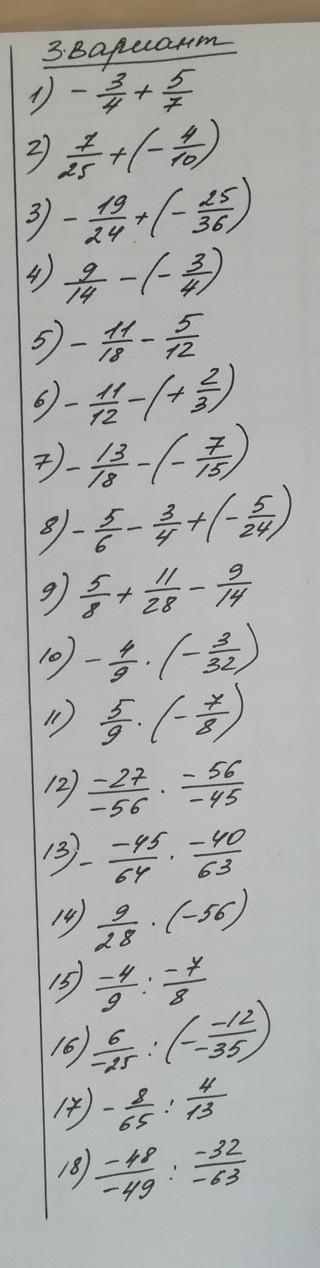 3. вариант
1) - 3/4 + 5/7
2) 7/25 + (- 4/10)
3) - 19/24 + (- 25/36)
4) 9/14 - (- 3/4)
5) - 11/18 - 5/12
6) - 11/12 - (+ 2/3)
7) - 13/18 - (- 7/15)
8) - 5/6 - 3/4 + (- 5/24)
9) 5/8 + 11/28 - 9/14
10) - 4/9 · (- 3/32)
11) 5/9 · (- 7/8)
12) -27/-56 · -56/-45
13) - -45/64 · -40/63
14) 9/28 · (-56)
15) -4/9 : -7/8
16) 6/-25 : (- -12/-35)
17) - 8/65 : 4/13
18) -48/-49 : -32/-63